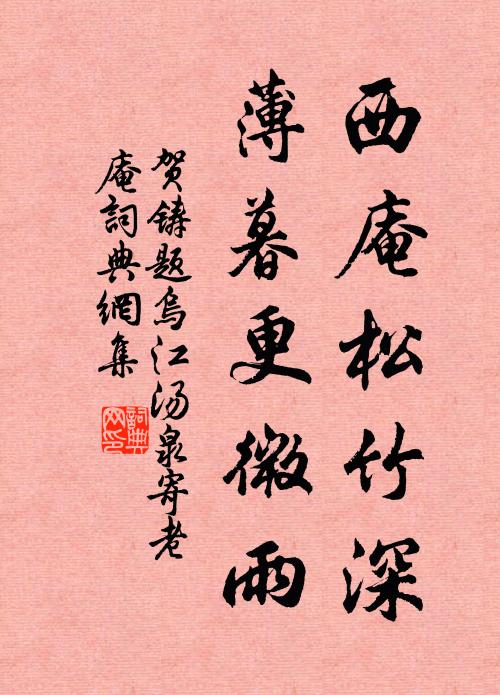 西庵松竹深
薄暮更微雨
贺铸题乌江汤泉寄老
庵詞典網集
詞典
网印